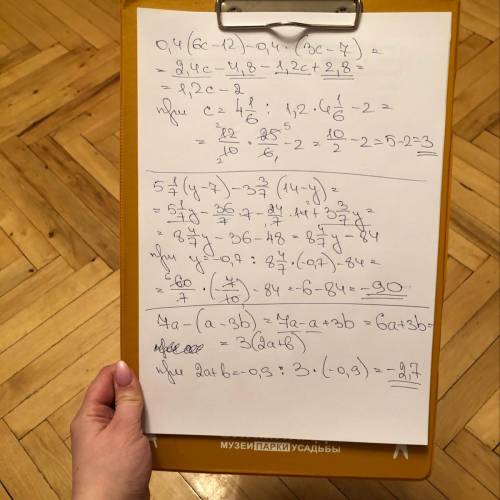 0,4(6c-12)-0,4·(3c-7)=
=2,4c-4,8-1,2c+2,8=
=1,2c-2
при c=4 1/6 : 1,2·4 1/6-2=
=12/10·25/6-2=10/2-2=5-2=3
5 1/7(y-7)-3 3/7(14-y)=
=5 1/7y-36/7·7-24/7·14+3 3/7y=
=8 4/7y-36-48=8 4/7y-84
при y=-0,7 : 8 4/7·(-0,7)-84=
=60/7·(-7/10)-84=-6-84=-90
7a-(a-3b)=7a-a+3b=6a+3b=
=3(2a+b)
при 2a+b=-0,9 : 3·(-0,9)=-2,7
МУЗЕИ ПАРКИ УСАДЬБЫ